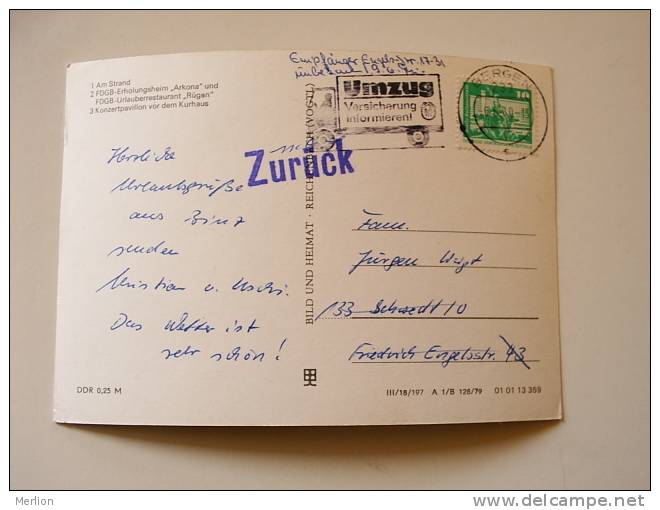 1 Am Strand
2 FDGB-Erholungsheim „Arkona" und
FDGB-Urlauberrestaurant „Rügen"
3 Konzertpavillon vor dem Kurhaus
Empfänger Engelsstr. 17-31
unbekannt
Umzug
Versicherung
informieren!
BERGEN
10
Zurück
Herzliche
Urlaubsgrüße
aus Binz
senden
Christian u. Uschi.
Das Wetter ist
sehr schön!
BILD UND HEIMAT · REICHENBACH (VOGTL)
Fam.
Jürgen
133 Schwedt/O
Friedrich Engelsstr. 43
DDR 0,25 M
III/18/197 A 1/B 128/79 01 01 13 389
Merlion
www.delcampe.net